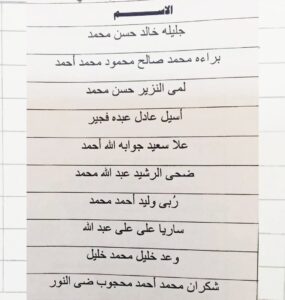 الاســـم
جليله خالد حسن محمد
براءه محمد صالح محمود محمد أحمد
لمى النزير حسن محمد
أسيل عادل عبده فجير
علا سعيد جوابه الله أحمد
ضحى الرشيد عبد الله محمد
رُبى وليد أحمد محمد
ساريا على على عبد الله
وعد خليل محمد خليل
شكران محمد أحمد محجوب ضى النور